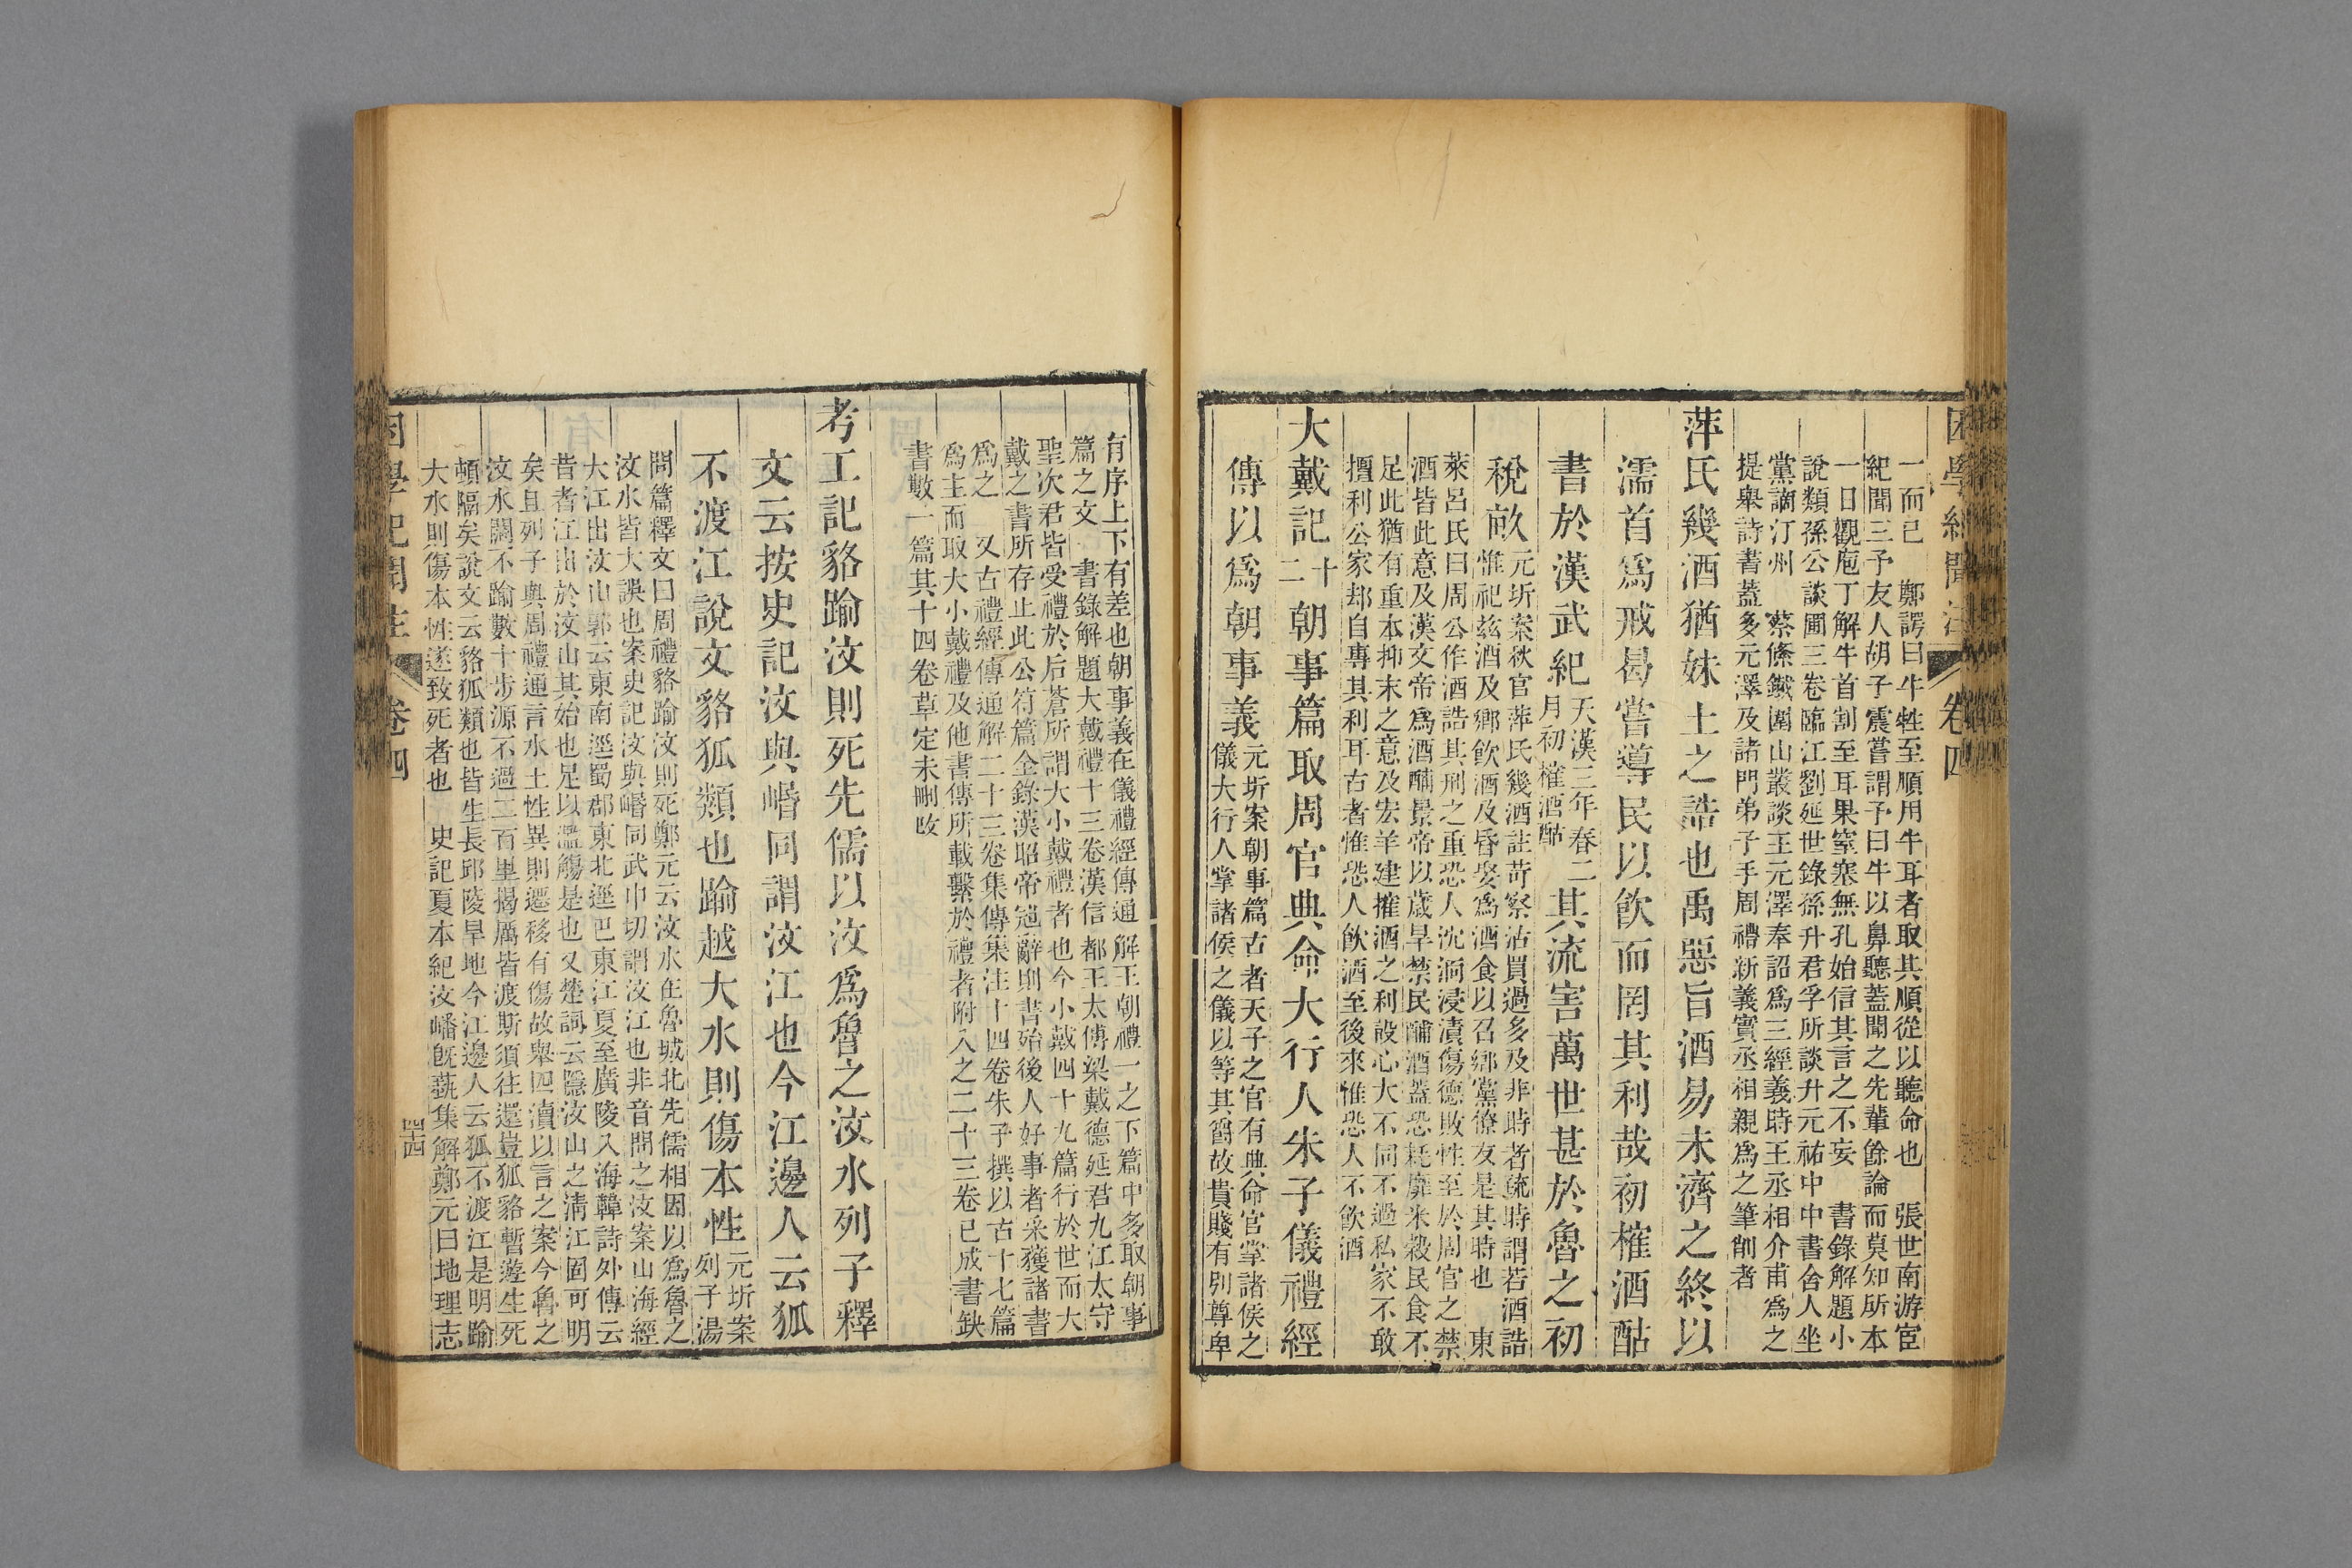 困學紀聞注 卷四
一而已　鄭諤曰牛牲至順用牛耳者取其順從以聽命也　張世南游宦
紀聞三予友人胡子震嘗謂予曰牛以鼻聽蓋聞之先輩餘論而莫知所本
一日觀庖丁解牛首割至耳果窒塞無孔始信其言之不妄　書錄解題小
說類孫公談圃三卷臨江劉延世錄孫升君孚所談升元祐中中書舍人坐
黨謫汀州　蔡絛鐵圍山叢談王元澤奉詔爲三經義時王丞相介甫爲之
提舉詩書蓋多元澤及諸門弟子手周禮新義實丞相親爲之筆削者
萍氏幾酒猶妹土之誥也禹惡旨酒易未濟之終以
濡首爲戒曷嘗導民以飮而罔其利哉初榷酒酤
書於漢武紀天漢三年春二月初榷酒酤其流害萬世甚於魯之初
稅畝元圻案秋官萍氏幾酒註苛察沽買過多及非時者疏時謂若酒誥
惟祀玆酒及鄉飮酒及昏娶爲酒食以召鄉黨僚友是其時也　東
萊呂氏曰周公作酒誥其刑之重恐人沈湎浸漬傷德敗性至於周官之禁
酒皆此意及漢文帝爲酒酺景帝以歲旱禁民酤酒蓋恐耗靡米穀民食不
足此猶有重本抑末之意及宏羊建摧酒之利設心大不同不過私家不敢
擅利公家却自專其利耳古者惟恐人飮酒至後來惟恐人不飮酒
大戴記十二朝事篇取周官典命大行人朱子儀禮經
傳以爲朝事義元圻案朝事篇古者天子之官有典命官掌諸侯之
儀大行人掌諸侯之儀以等其爵故貴賤有別尊卑
有序上下有差也朝事義在儀禮經傳通解王朝禮一之下篇中多取朝事
篇之文　書錄解題大戴禮十三卷漢信都王太傅梁戴德延君九江太守
聖次君皆受禮於后蒼所謂大小戴禮者也今小戴四十九篇行於世而大
戴之書所存止此公符篇全錄漢昭帝冠辭則書殆後人好事者采獲諸書
爲之　又古禮經傳通解二十三卷集傳集注十四卷朱子撰以古十七篇
爲主而取大小戴禮及他書傳所載繫於禮者附入之二十三卷已成書缺
書數一篇其十四卷草定未刪改
考工記貉踰汶則死先儒以汶爲魯之汶水列子釋
文云按史記汶與㟭同謂汶江也今江邊人云狐
不渡江說文貉狐類也踰越大水則傷本性元圻案列子湯
問篇釋文曰周禮貉踰汶則死鄭元云汶水在魯城北先儒相因以爲魯之
汶水皆大誤也案史記汶與㟭同武巾切謂汶江也非音問之汶案山海經
大江出汶山郭云東南逕蜀郡東北逕巴東江夏至廣陵入海韓詩外傳云
昔者江出於汶山其始也足以濫觴是也又楚詞云隱汶山之淸江固可明
矣且列子與周禮通言水土性異則遷移有傷故舉四瀆以言之案今魯之
汶水闊不踰數十步源不過二百里揭厲皆渡斯須往還豈狐貉暫遊生死
頓隔矣說文云貉狐類也皆生長邱陵旱地今江邊人云狐不渡江是明踰
大水則傷本性遂致死者也　史記夏本紀汶嶓旣蓺集解鄭元曰地理志
困學紀聞注 卷四